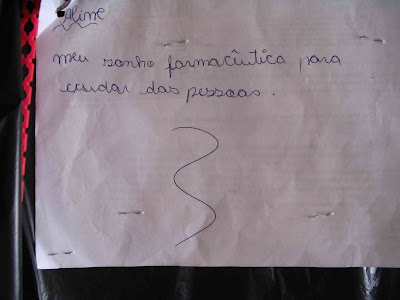 Aline
meu sonho farmacêutica para
cuidar das pessoas.